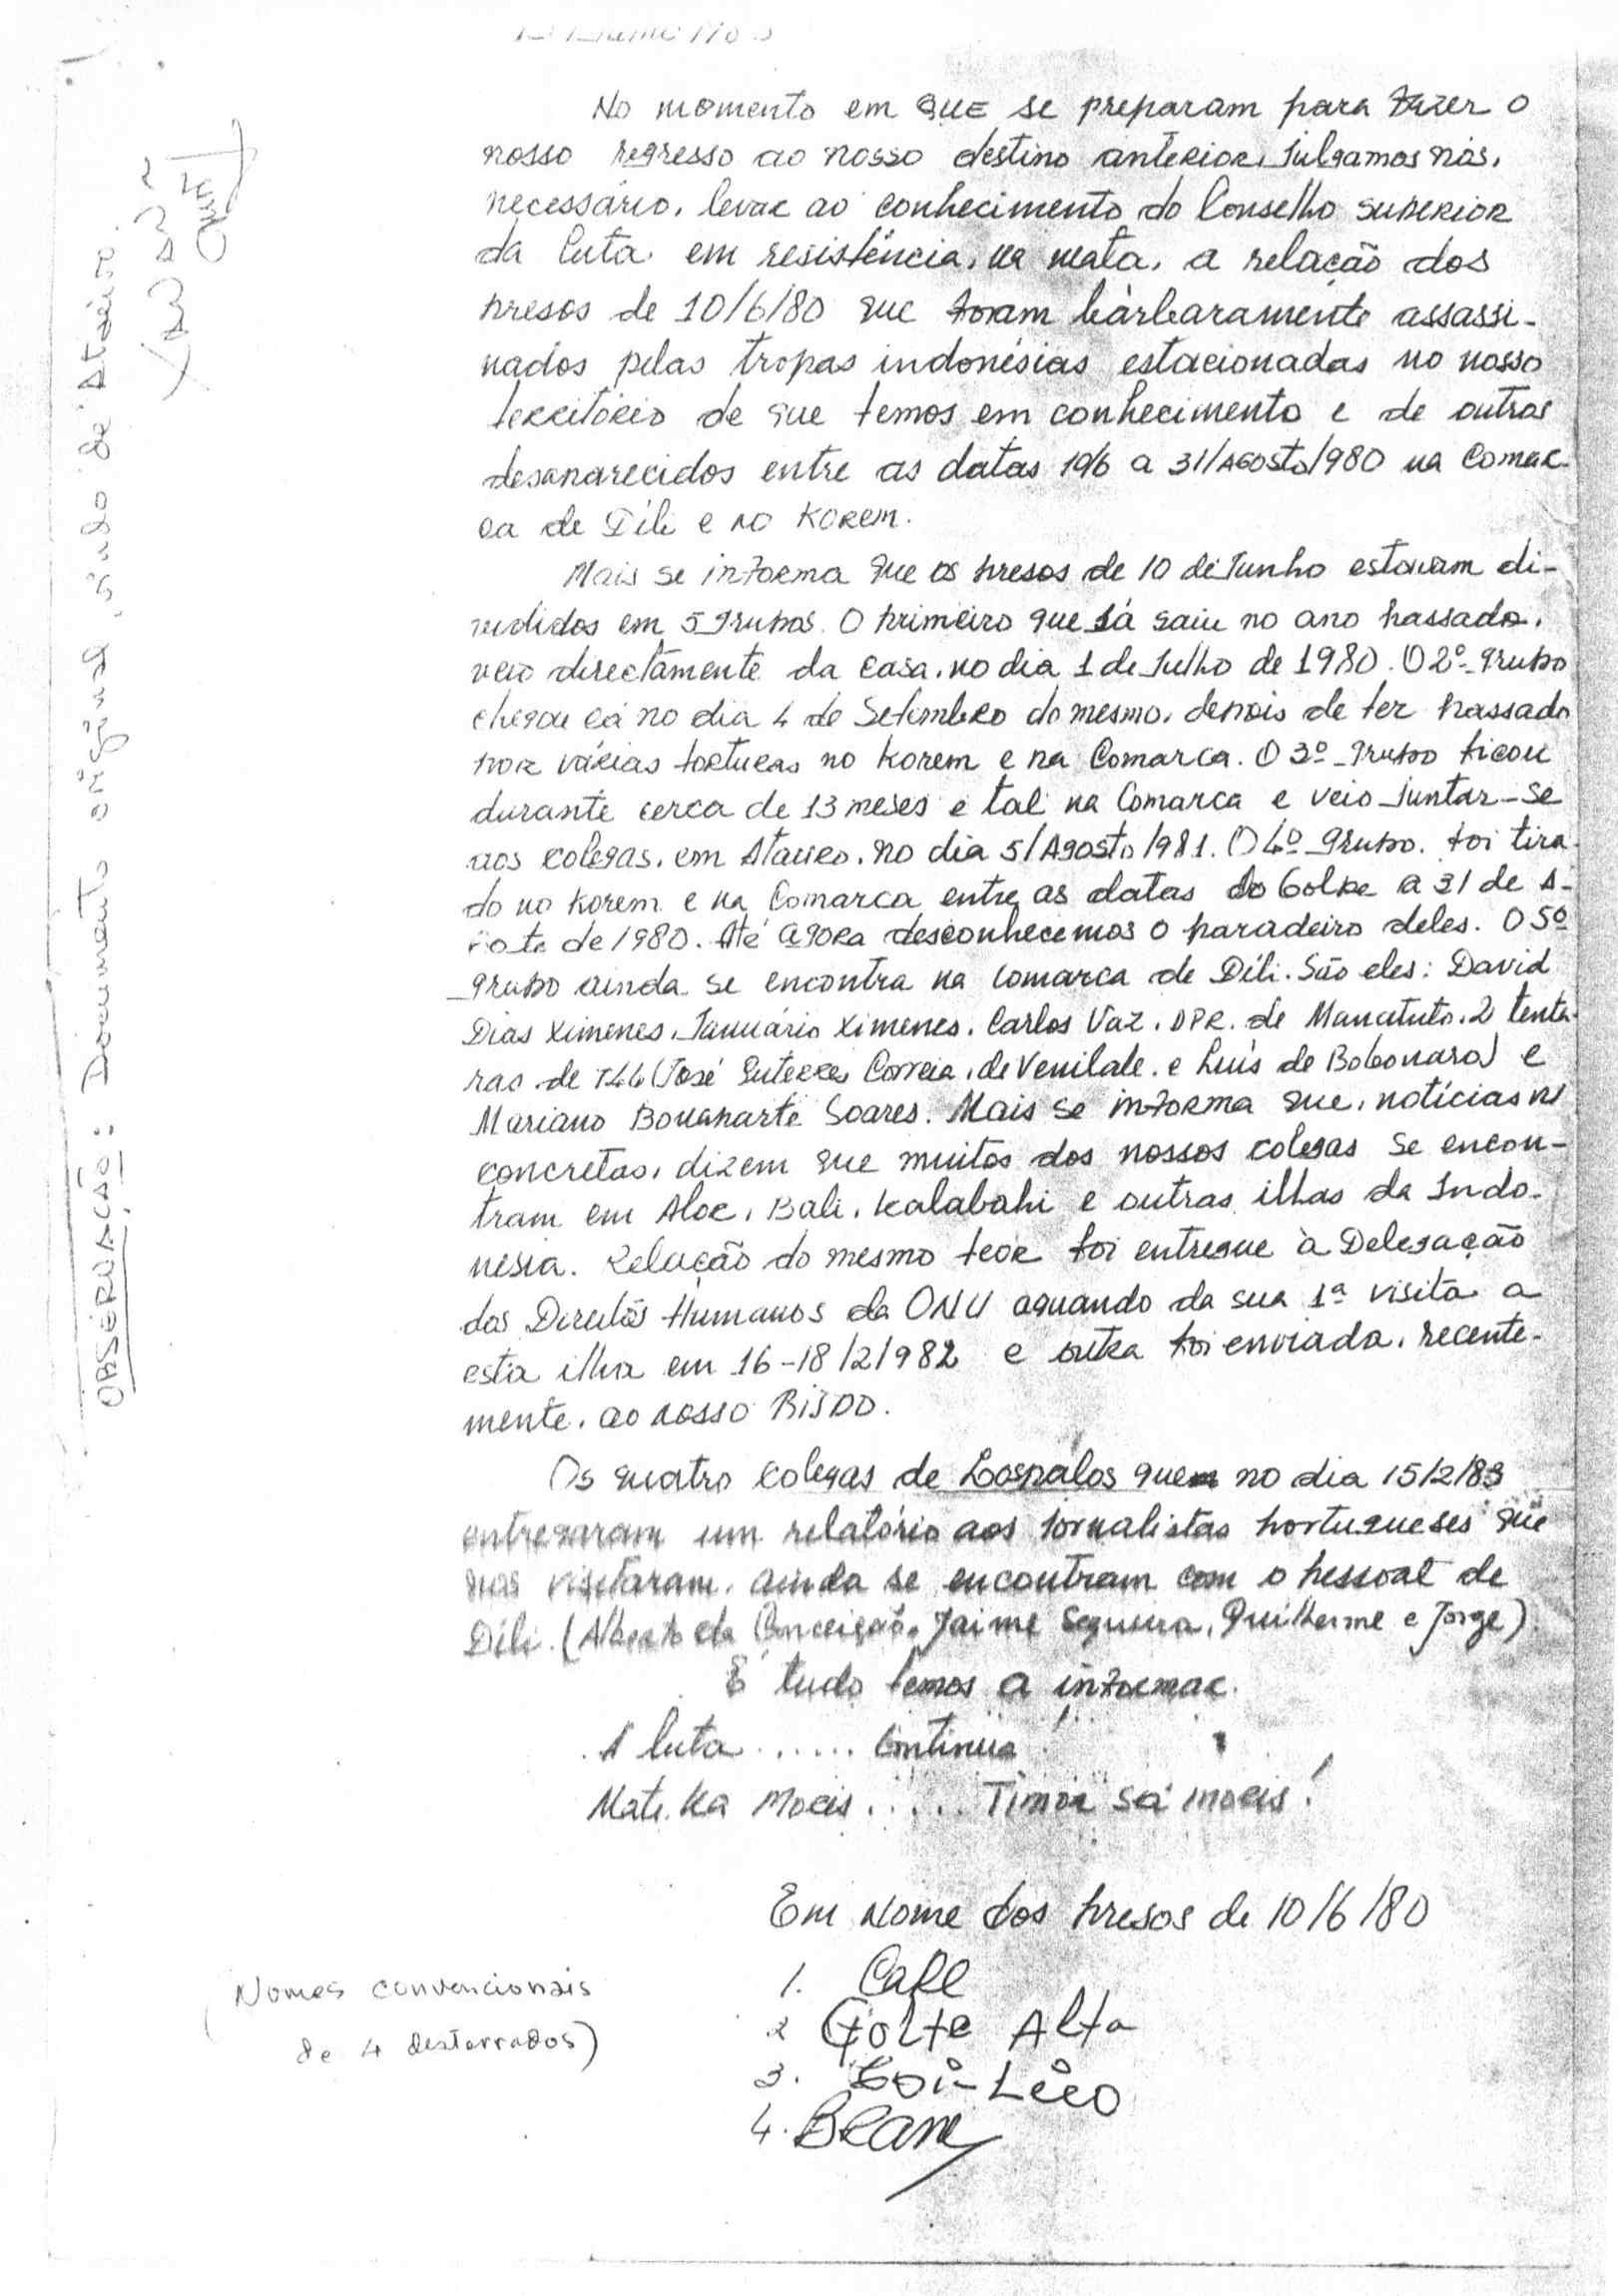 No momento em que se preparam para fazer o
nosso regresso ao nosso destino anterior, julgamos nós,
necessário, levar ao conhecimento do Conselho Superior
da luta em resistência, na mata, a relação dos
presos de 10/6/80 que foram bàrbaramente assassi-
nados pelas tropas indonésias estacionadas no nosso
território de que temos em conhecimento e de outros
desaparecidos entre as datas 10/6 a 31/Agosto/980 na Comar-
ca de Díli e no Korem.
Mais se informa que os presos de 10 de Junho estavam di-
vididos em 5 grupos. O primeiro que já saiu no ano passado,
veio directamente da casa, no dia 1 de Julho de 1980. O 2º grupo
chegou cá no dia 4 de Setembro do mesmo, depois de ter passado
por várias torturas no Korem e na Comarca. O 3º grupo ficou
durante cerca de 13 meses e tal na Comarca e veio juntar-se
aos colegas, em Atauro, no dia 5/Agosto/981. O 4º grupo, foi tira-
do no Korem e na Comarca entre as datas do Golpe a 31 de A-
de 1980. Até agora desconhecemos o paradeiro deles. O 5º
grupo ainda se encontra na comarca de Díli. São eles: David
Dias Ximenes, Januário Ximenes, Carlos Vaz, DPR. de Manatuto, 2
de 744 (José Guterres Correia, de Venilale, e Luís de Bobonaro) e
Mariano Bonaparte Soares. Mais se informa que, notícias
concretas, dizem que muitos dos nossos colegas se encon-
tram em Alor, Bali, Kalabahi e outras ilhas da Indo-
nésia. Relação do mesmo teor foi entregue à Delegação
dos Direitos Humanos da ONU aquando da sua 1ª visita a
esta ilha em 16-18/2/982 e outra foi enviada, recente-
mente, ao nosso BISPO.
Os quatro colegas de Lospalos que no dia 15/2/83
entregaram um relatório aos jornalistas portugueses que
nos visitaram, ainda se encontram com o pessoal de
Díli. (Alberto da Conceição, Jaime Sequeira, Guilherme e Jorge)
É tudo temos a informar.
A luta ...... Continua!
Mate ka Moris ..... Timor sei moris!
Em nome dos presos de 10/6/80
1. Cafe
2 Golfe Alfa
3. Loi-Léro
4.
(Nomes convencionais
de 4 desterrados)
OBSERVAÇÃO: Documento original, saído de Ataúro.